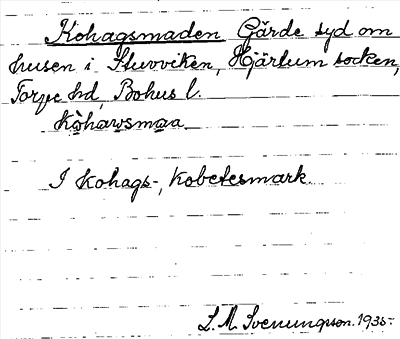 Kohagsmaden Gärde syd om
husen i Stuvviken, Hjärtum socken,
Torpe hd, Bohus l.
kòhawsmaa
I kohags-, kobetesmark.
L. M. Svenungsson. 1935-